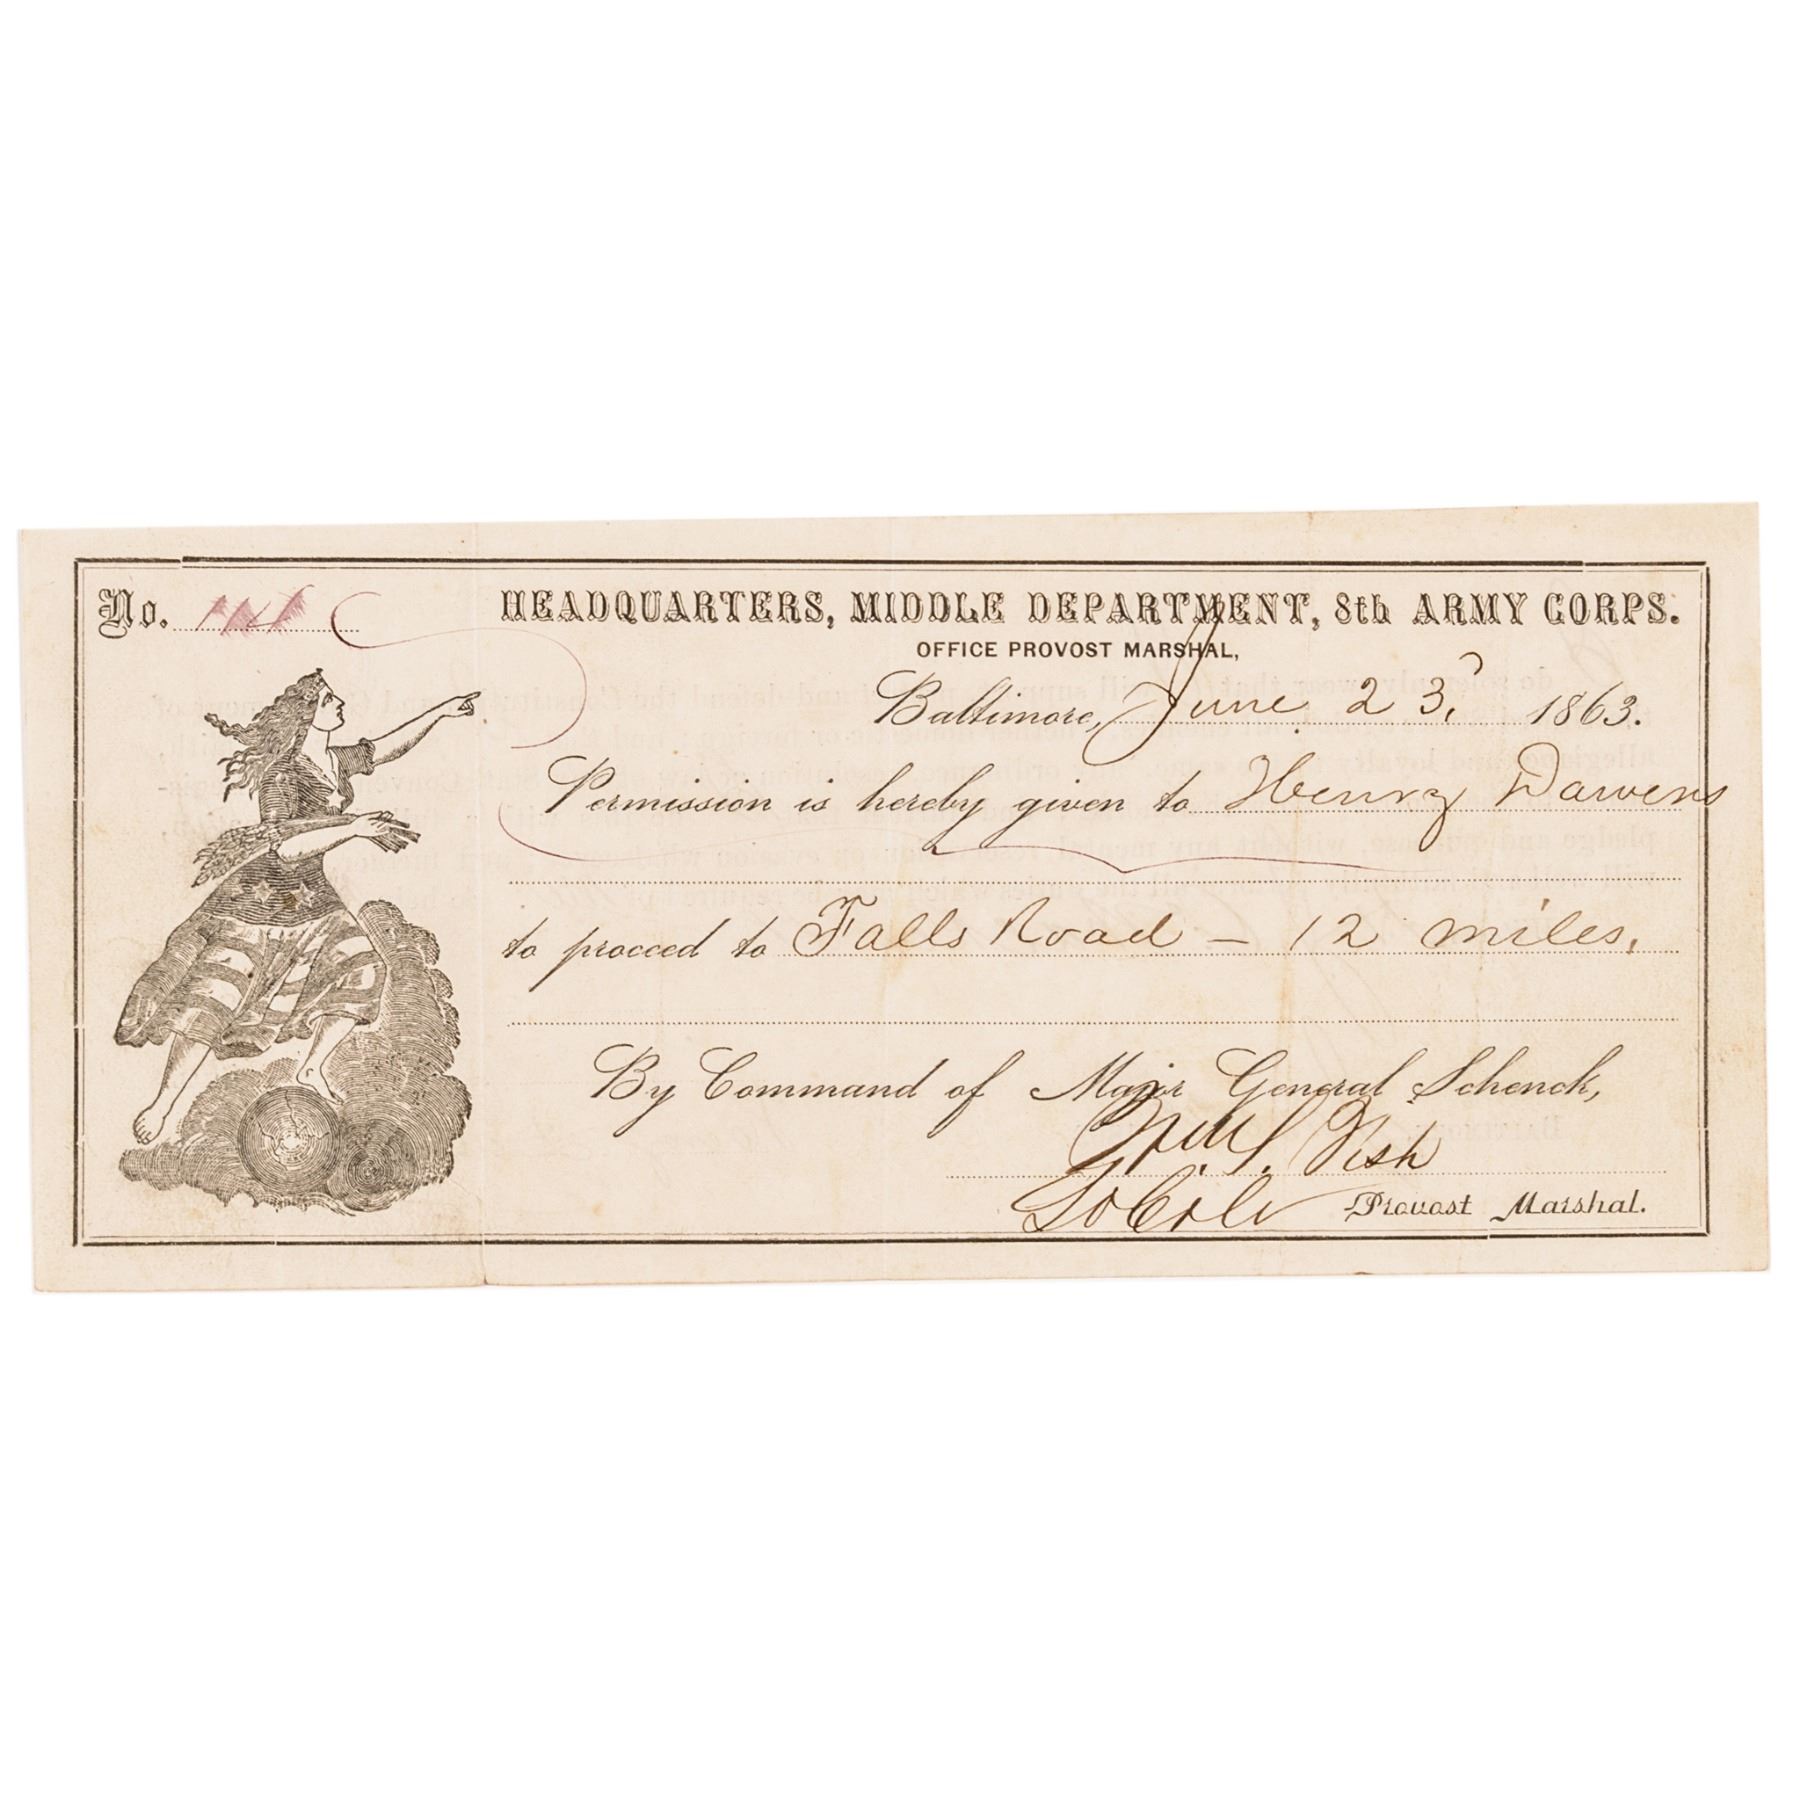 No.
HEADQUARTERS, MIDDLE DEPARTMENT, 8th ARMY CORPS.
OFFICE PROVOST MARSHAL,
Baltimore, June 23, 1863.
Permission is hereby given to Henry Dawens
to proceed to Falls Road – 12 miles,
By Command of Major General Schenck,
Wm. S. Fish
Provost Marshal.